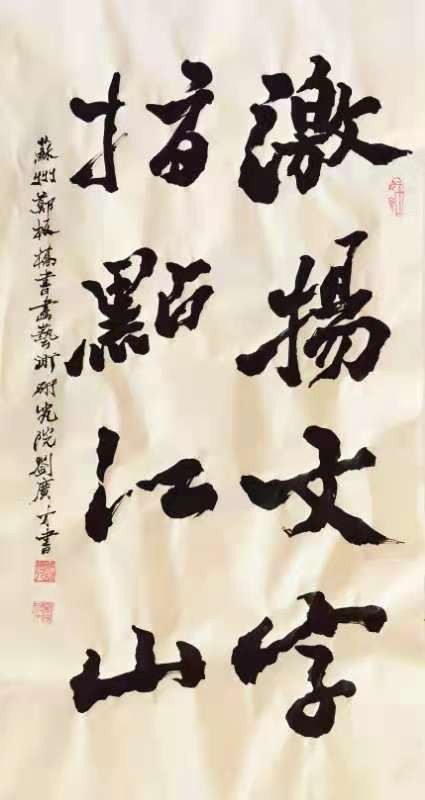 激揚文字
指點江山
蘇州鄭板橋書畫藝術研究院劉廣才書